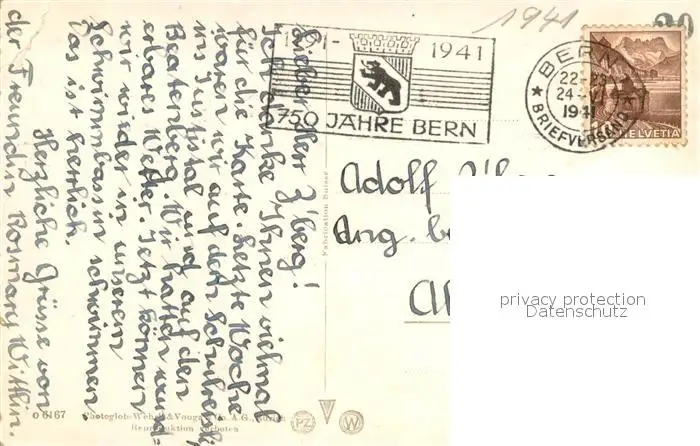 1941
20
1191-
1941
750 JAHRE BERN
BERN
22-23
24.
1941
BRIEFVERSAND
HELVETIA
Lieber Herr Z'berg!
Ich danke Ihnen vielmal
für die Karte. Letzte Woche
waren wir auf der Schulreise
ins Justistal und auf den
Beatenberg. Wir hatten wund-
erbares Wetter. Jetzt können
wir wieder in unserem
Schwimmbassin schwimmen
Das ist herrlich.
Herzliche Grüsse von
der Freundin Rosmary Wittlin.
Adolf Z'berg
Ang.
Fabrication Suisse
privacy protection
Datenschutz
O 6167
Photoglob-Wehrli & Vouga & Co. A.G., Zürich
Reproduktion verboten
PZ
W